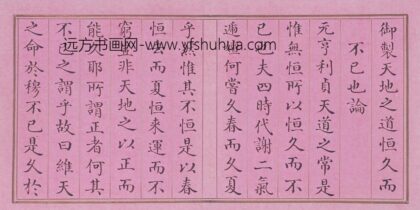 御製天地之道恒久而
不已也論
元亨利貞天道之常是
惟無恒所以恒久而不
已夫四時代謝二氣
遞何嘗久春而久夏
乎惟其不恒是以春
恒去而夏恒来運而不
窮非天地之以正而
能久耶所謂正者何其
不已之謂乎故曰維天
之命於穆不已是久於
远方书画网-www.yfshuhua.com